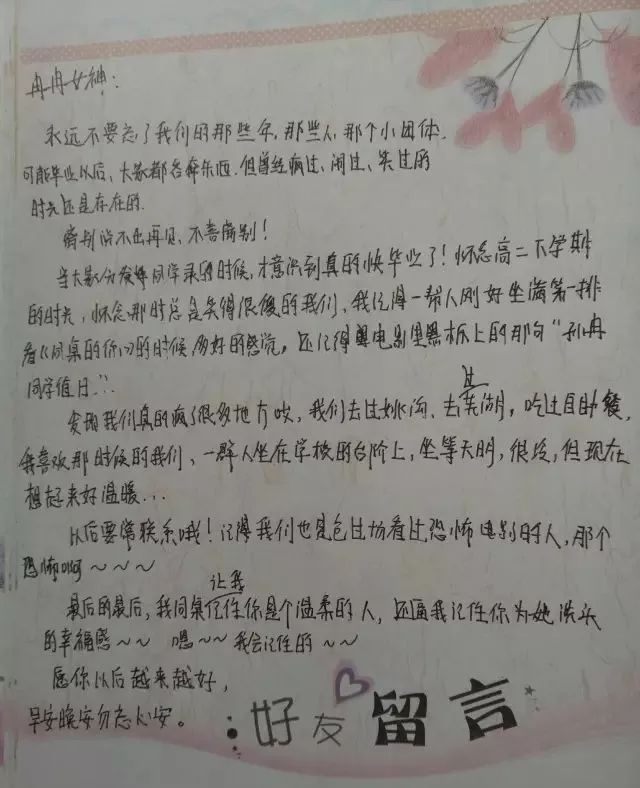 冉冉女神：
永远不要忘了我们的那些年，那些人，那个小团体，
可能毕业以后、大家都各奔东西．但曾经疯过、闹过、笑过的
时光还是存在的．
离别说不出再见、不善离别！
当大家分发着同学录的时候，才意识到真的快毕业了！怀念高二下学期
的时光，怀念那时总是笑得很傻的我们、我记得一帮人刚好坐满第一排
看《同桌的你》的时候多好的感觉。还记得电影里黑板上的那句“孙冉
同学值日”．
发现我们真的疯了很多地方哎，我们去过姚沟、去过芜湖，吃过自助餐
我喜欢那时候的我们、一群人坐在学校的台阶上，坐等天明，很冷，但现在
想起来好温暖...
以后要常联系哦！记得我们也是包过场看过恐怖电影的人，那个
恐怖啊～～～
最后的最后，我同桌让我记住你是个温柔的人，还逼我记住你为她洗头
的幸福感～～ 嗯～～我会记住的～～
愿你以后越来越好，
早安晚安勿忘心安。
好友留言